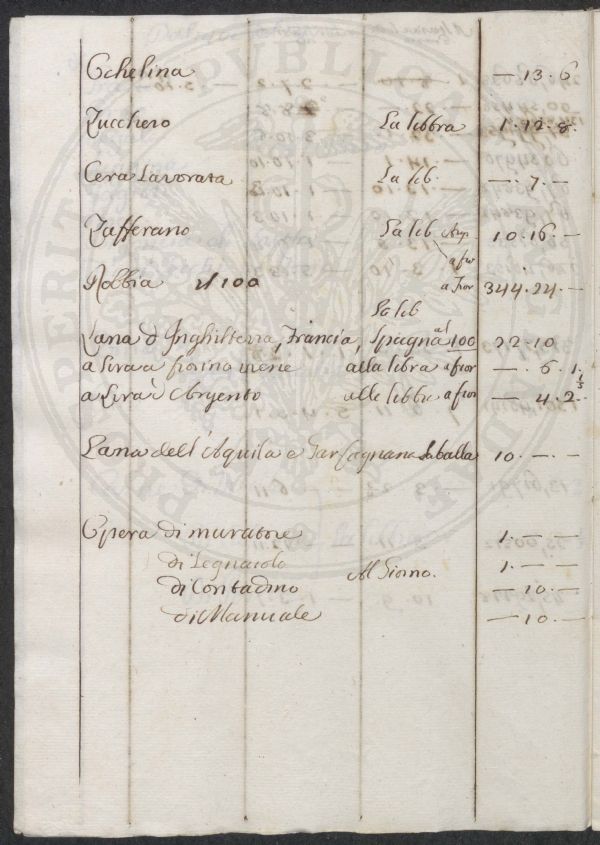 Ochelina — 13 · 6
Zucchero La libbra 1 · 12 · 8
Cera Lavorata La lib — · 7 · —
Zafferano La lib Arg. 10 · 16 —
a fior
Robbia il 100 a Fior 344 · 24 · —
La lib
Lana d'Inghilterra, Francia, Spagna al 100 22 · 10
a fiorino viene alla libra a fior — · 6 · 1
a Lira d'Argento alle libbre a fior — 4 · 2 · 1/3
Lana dell'Aquila e Garfagnana la balla 10 · — · —
Opera di muratore 1 · — —
di Legnaiolo Al Giorno. 1 · — —
di Contadino — 10 · —
di Manuale — 10 · —